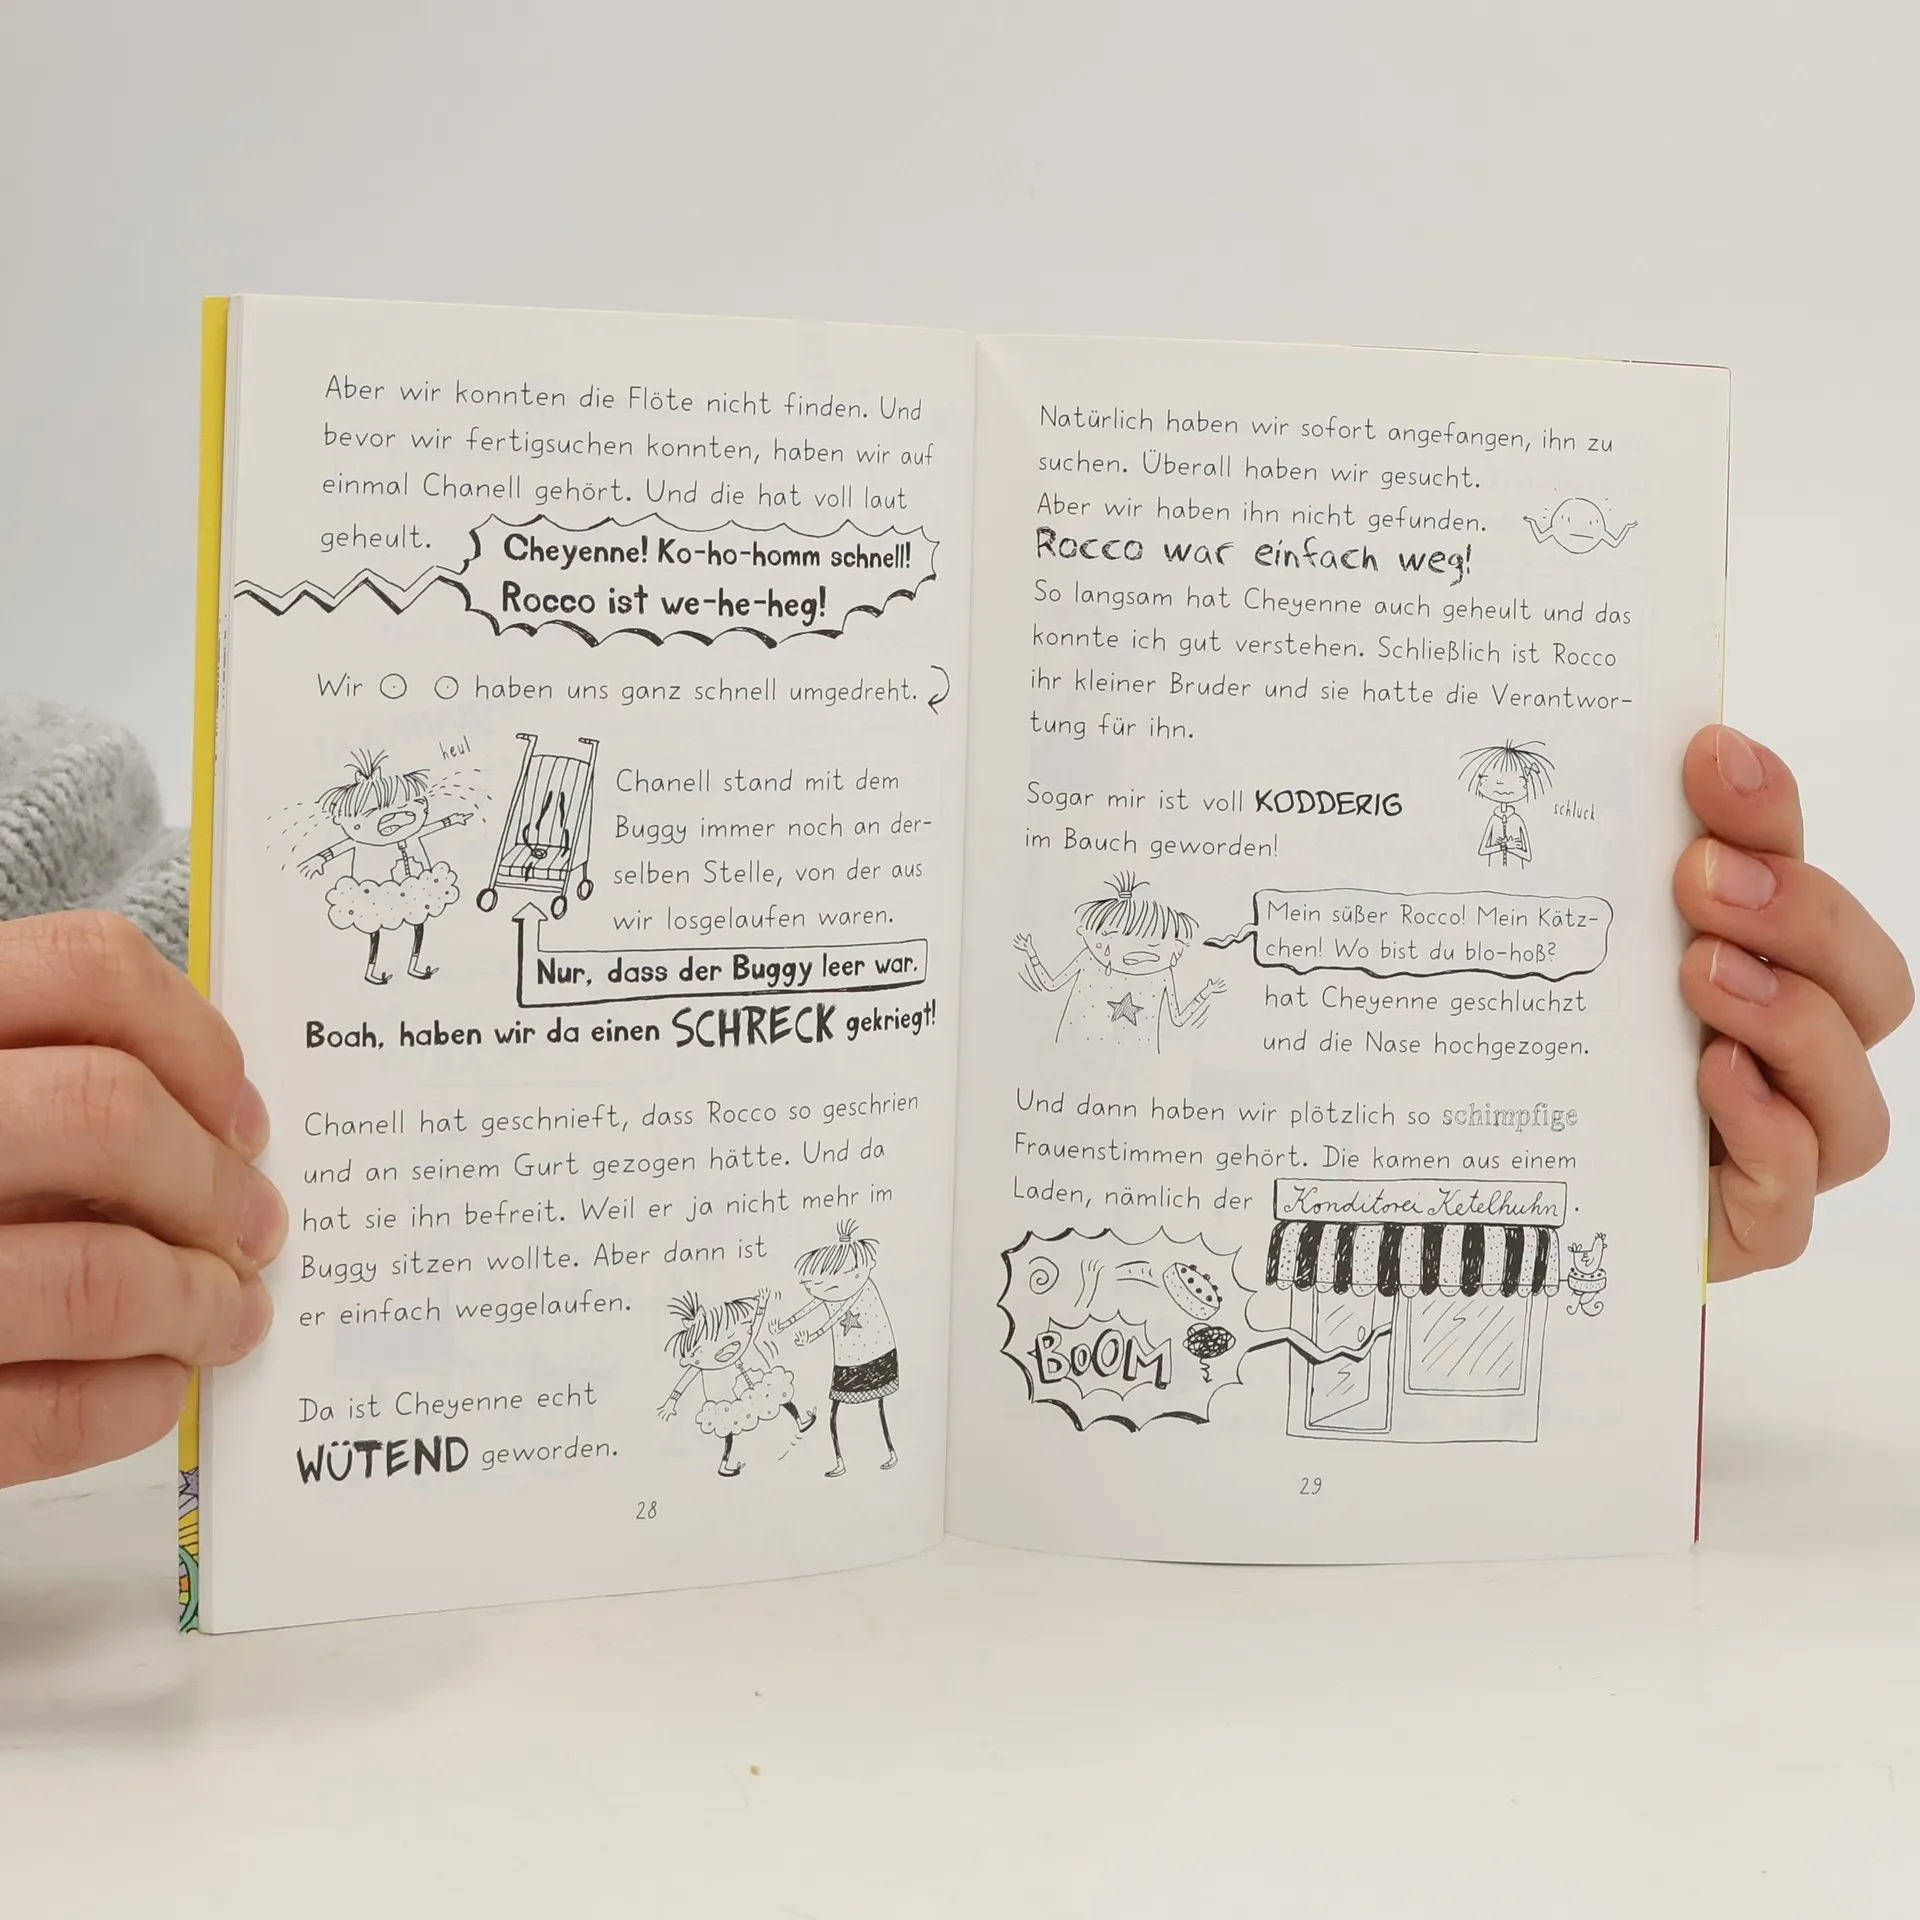 Aber wir konnten die Flöte nicht finden. Und
bevor wir fertigsuchen konnten, haben wir auf
einmal Chanell gehört. Und die hat voll laut
geheult.
Cheyenne! Ko-ho-homm schnell!
Rocco ist we-he-heg!
Wir haben uns ganz schnell umgedreht.
heul
Chanell stand mit dem
Buggy immer noch an der-
selben Stelle, von der aus
wir losgelaufen waren.
Nur, dass der Buggy leer war.
Boah, haben wir da einen SCHRECK gekriegt!
Chanell hat geschnieft, dass Rocco so geschrien
und an seinem Gurt gezogen hätte. Und da
hat sie ihn befreit. Weil er ja nicht mehr im
Buggy sitzen wollte. Aber dann ist
er einfach weggelaufen.
Da ist Cheyenne echt
WÜTEND geworden.
28
Natürlich haben wir sofort angefangen, ihn zu
suchen. Überall haben wir gesucht.
Aber wir haben ihn nicht gefunden.
Rocco war einfach weg!
So langsam hat Cheyenne auch geheult und das
konnte ich gut verstehen. Schließlich ist Rocco
ihr kleiner Bruder und sie hatte die Verantwor-
tung für ihn.
Sogar mir ist voll KODDERIG
im Bauch geworden!
schluck
Mein süßer Rocco! Mein Kätz-
chen! Wo bist du blo-hoß?
hat Cheyenne geschluchzt
und die Nase hochgezogen.
Und dann haben wir plötzlich so schimpfige
Frauenstimmen gehört. Die kamen aus einem
Laden, nämlich der Konditorei Ketelhuhn.
BOOM
29